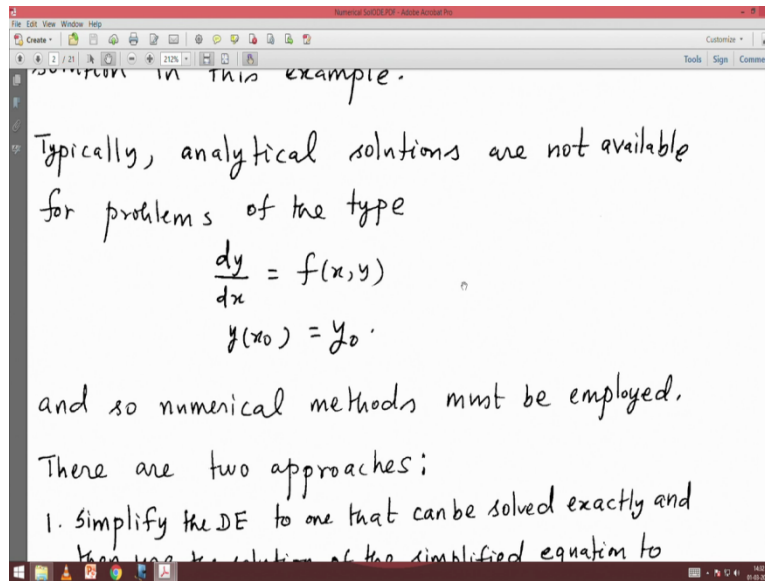 Numerical SolODE.PDF - Adobe Acrobat Pro
File Edit View Window Help
Create Customize
2 / 21 212% Tools Sign Comme
solution in this example.
Typically, analytical solutions are not available
for problems of the type
dy/dx = f(x,y)
y(x0) = y0.
and so numerical methods must be employed.
There are two approaches:
1. Simplify the DE to one that can be solved exactly and
then use the solution of the simplified equation to
14:32